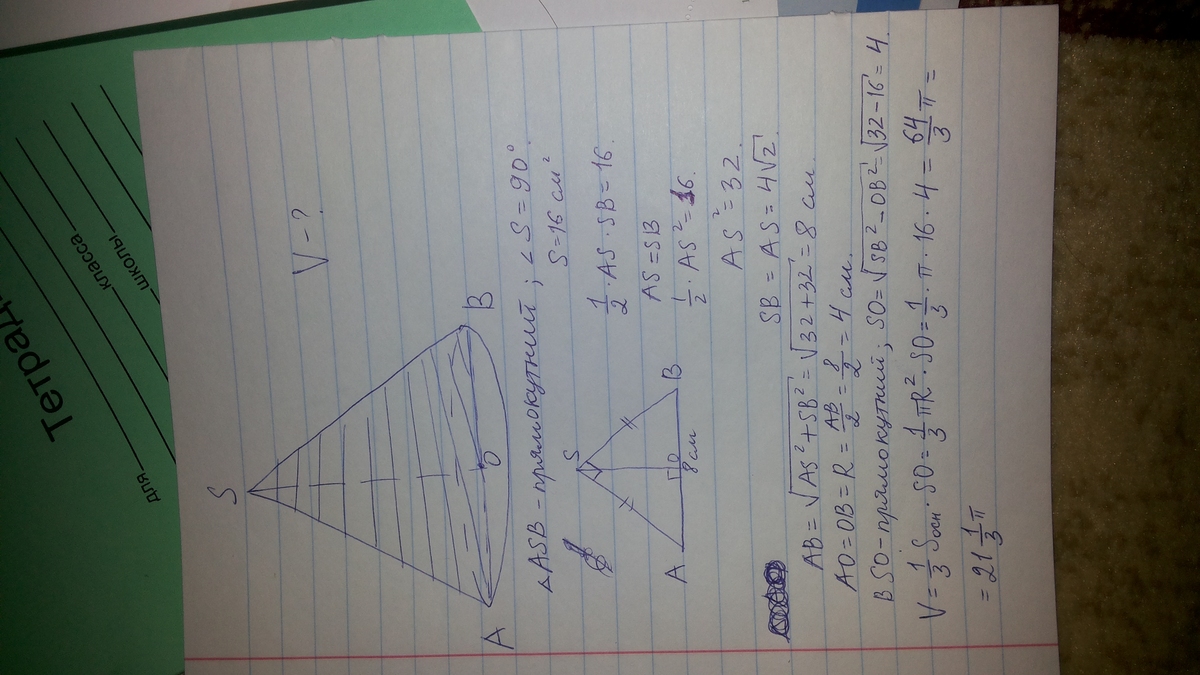 Тетрадь
для
класса
школы
S
V - ?
A
O
B
△ASB - прямокутний; ∠S = 90°.
S = 16 см²
1/2 · AS · SB = 16.
AS = SB
1/2 · AS² = 16.
AS² = 32.
S
A
O
B
8 см
SB = AS = 4√2.
AB = √(AS² + SB²) = √(32 + 32) = 8 см.
AO = OB = R = AB/2 = 8/2 = 4 см.
BSO - прямокутний; SO = √(SB² - OB²) = √(32 - 16) = 4.
V = 1/3 Sосн · SO = 1/3 πR² · SO = 1/3 · π · 16 · 4 = 64/3 π =
= 21 1/3 π